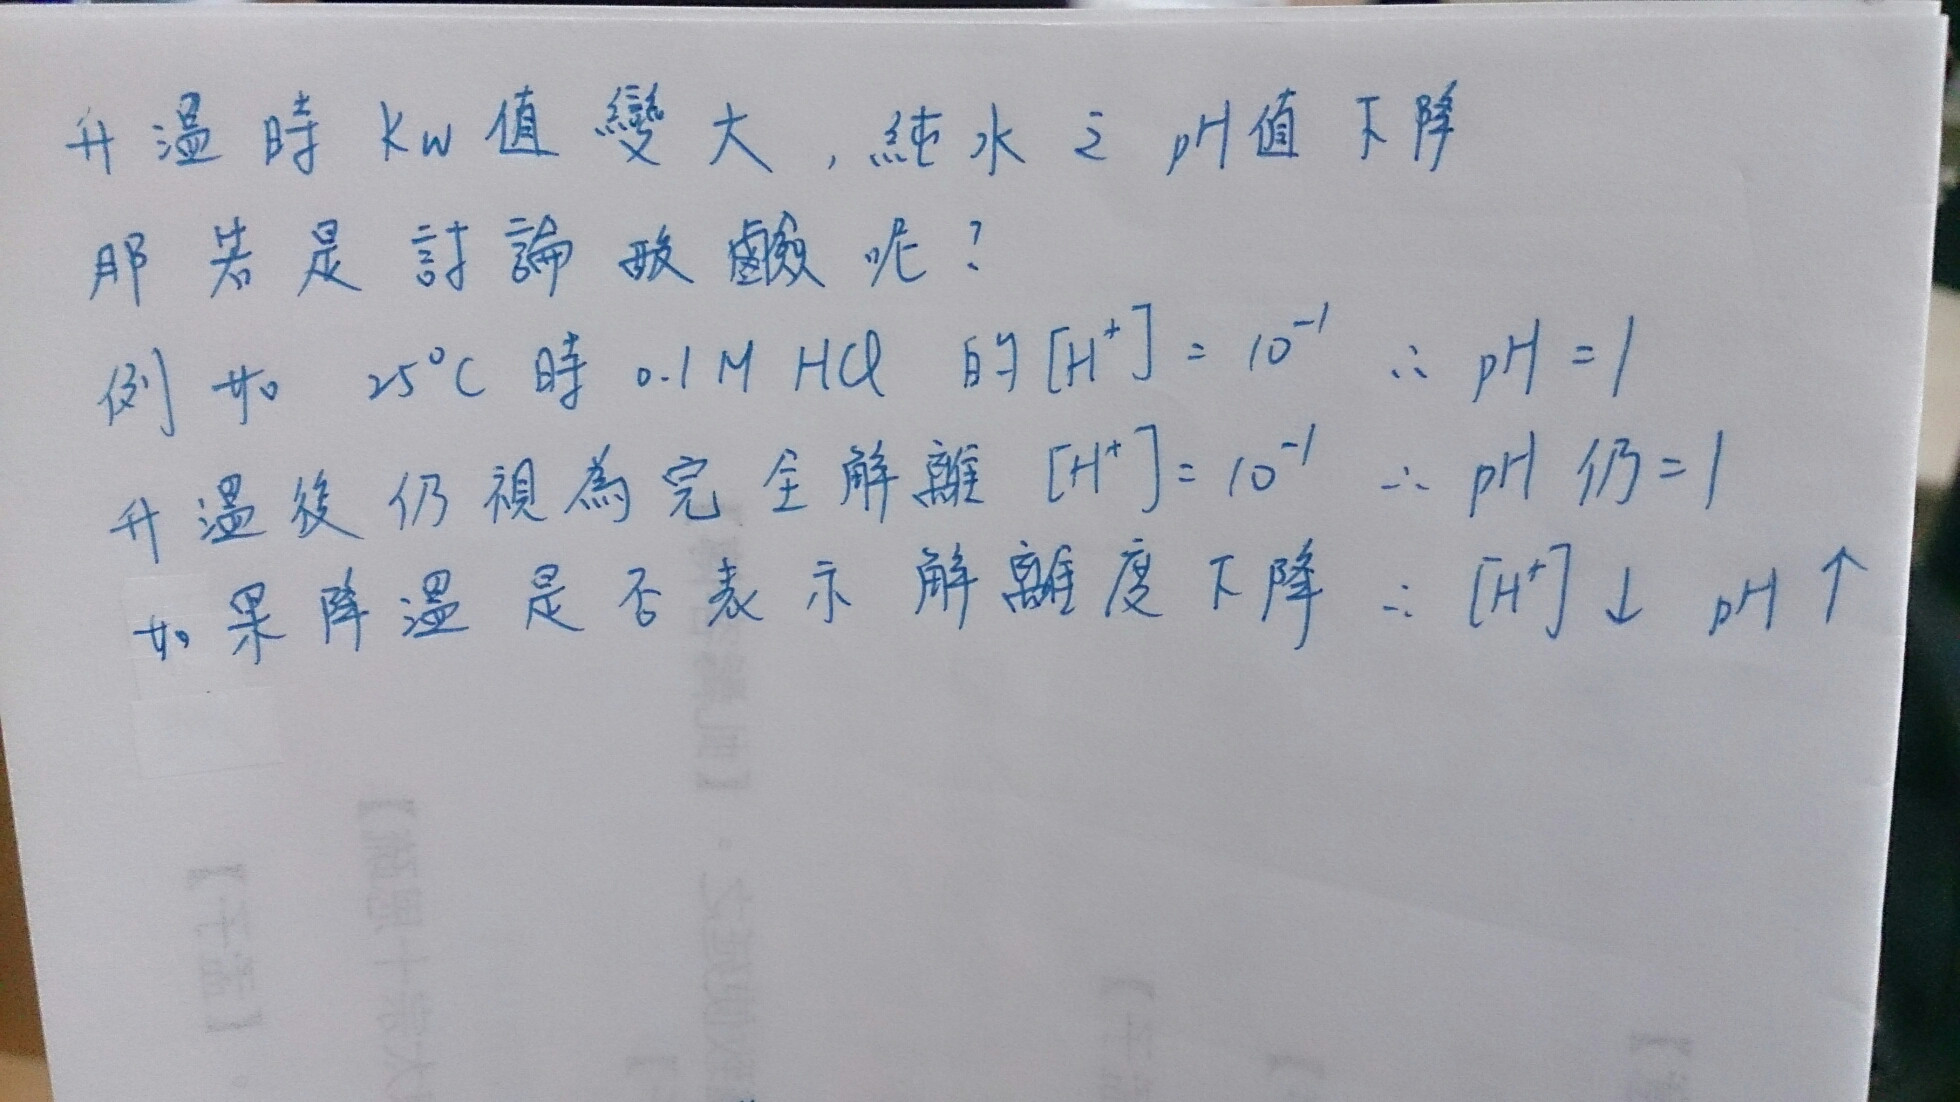 升溫時 Kw值變大，純水之 pH值下降
那若是討論酸鹼呢？
例如 25°C 時 0.1M HCl 的[H⁺] = 10⁻¹ ∴ pH = 1
升溫後仍視為完全解離 [H⁺] = 10⁻¹ ∴ pH 仍 = 1
如果降溫是否表示解離度下降 ∴ [H⁺]↓ pH↑